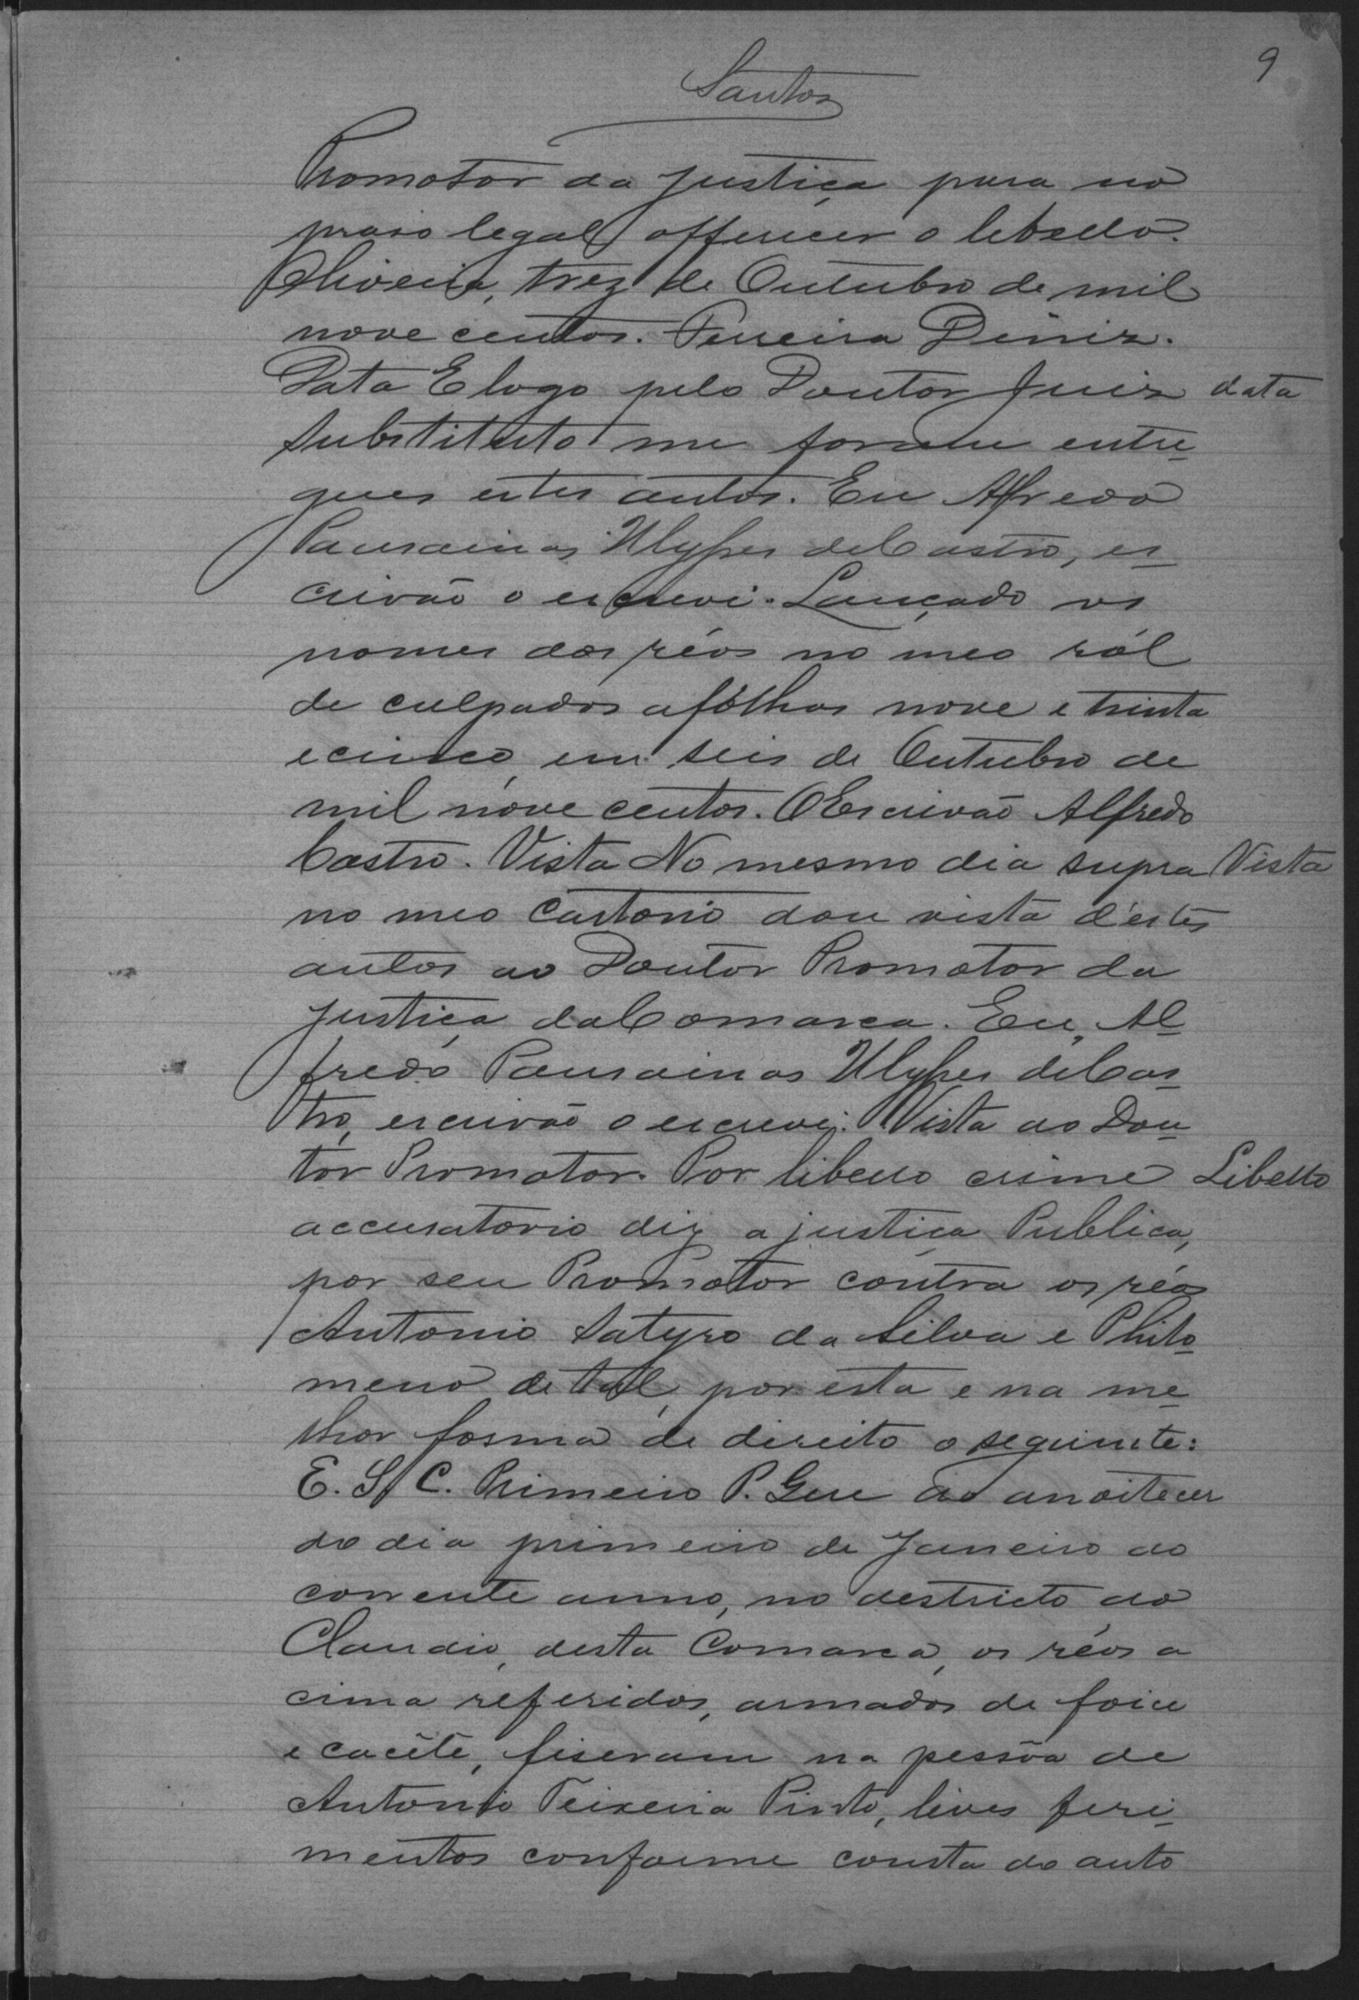 9
Santos
Promotor da justiça para no
praso legal offerecer o libello.
Oliveira, trez de Outubro de mil
nove centos. Ferreira Diniz.
Data E logo pelo Doutor Juiz data
substituto me foram entre-
gues estes autos. Eu Alfredo
Pausainas Ulysses de Castro, es-
crivão o escrevi. Lançado os
nomes dos réos no meo ról
de culpados a fôlhas nove e trinta
e cinco, em seis de Outubro de
mil nove centos. O Escrivão Alfredo
Castro. Vista No mesmo dia supra Vista
no meo Cartorio dou vista d'estes
autos ao Doutor Promotor da
justiça da Comarca. Eu, Al-
fredo Pausainas Ulysses de Cas-
tro, escrivão o escrevi. Vista ao Dou-
tor Promotor. Por libello crime Libello
accusatorio diz a justiça Publica,
por seu Promotor contra os réos
Antonio Satyro da Silva e Philo-
meno de tal, por esta e na me-
lhor forma de direito o seguinte:
E. S. C. Primeiro P. Que ao anoitecer
do dia primeiro de Janeiro do
corrente anno, no destricto do
Claudio, desta Comarca, os réos a
cima referidos, armados de foice
e cacête, fiseram na pessôa de
Antonio Teixeira Pinto, leves feri-
mentos conforme consta do auto